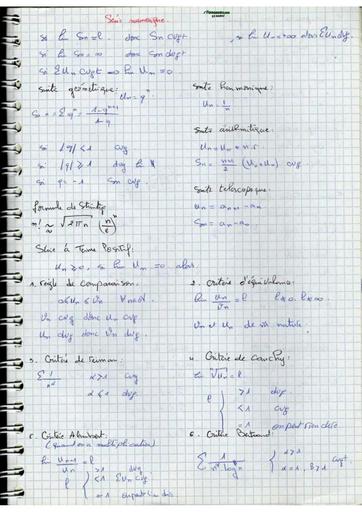 Série numérique.
si lim Sn = l donc Sn cvgt
si lim Sn = ∞ donc Sn dvgt
si lim Un = +∞ alors ΣUn dvg.
si ΣUn cvgt ⟹ lim Un = 0
suite géométrique:
Un = q^n
Sn = Σq^n = (1 - q^(n+1))/(1 - q)
si |q| < 1 cvg
si |q| > 1 dvg
si q = -1 Sn
suite harmonique:
Un = 1/n
suite arithmétique:
Un = U0 + n.r
Sn = (n+1)/2 (U0 + Un)
suite telescopique
Un = an+1 - an
formule de Stirling
n! ~ √(2πn) (n/e)^n
Série à Terme Positif:
Un ≥ 0, si lim Un = 0 alors
1. règle de comparaison.
0 ≤ Un ≤ Vn ∀n∈N.
Vn cvg donc Un cvg
Un dvg donc Vn dvg.
2. critère d'équivalence:
lim Un/Vn = l l≠0. l≠∞.
Vn et Un de même nature.
3. Critère de Rieman:
Σ 1/n^α α > 1 cvg
α ≤ 1 dvg.
4. Critère de Cauchy:
lim ⁿ√Un = l
l > 1 dvg.
< 1 cvg
= 1 on peut rien dire.
5. Critère Alembert.
(quand on a multiplication)
lim Un+1/Un = l
l > 1 dvg
< 1 ΣUn cvg
= 1 on peut rien dire
6. Critère Bertrand:
Σ 1/(n^α log^β n) α > 1
α = 1, β > 1 cvgt